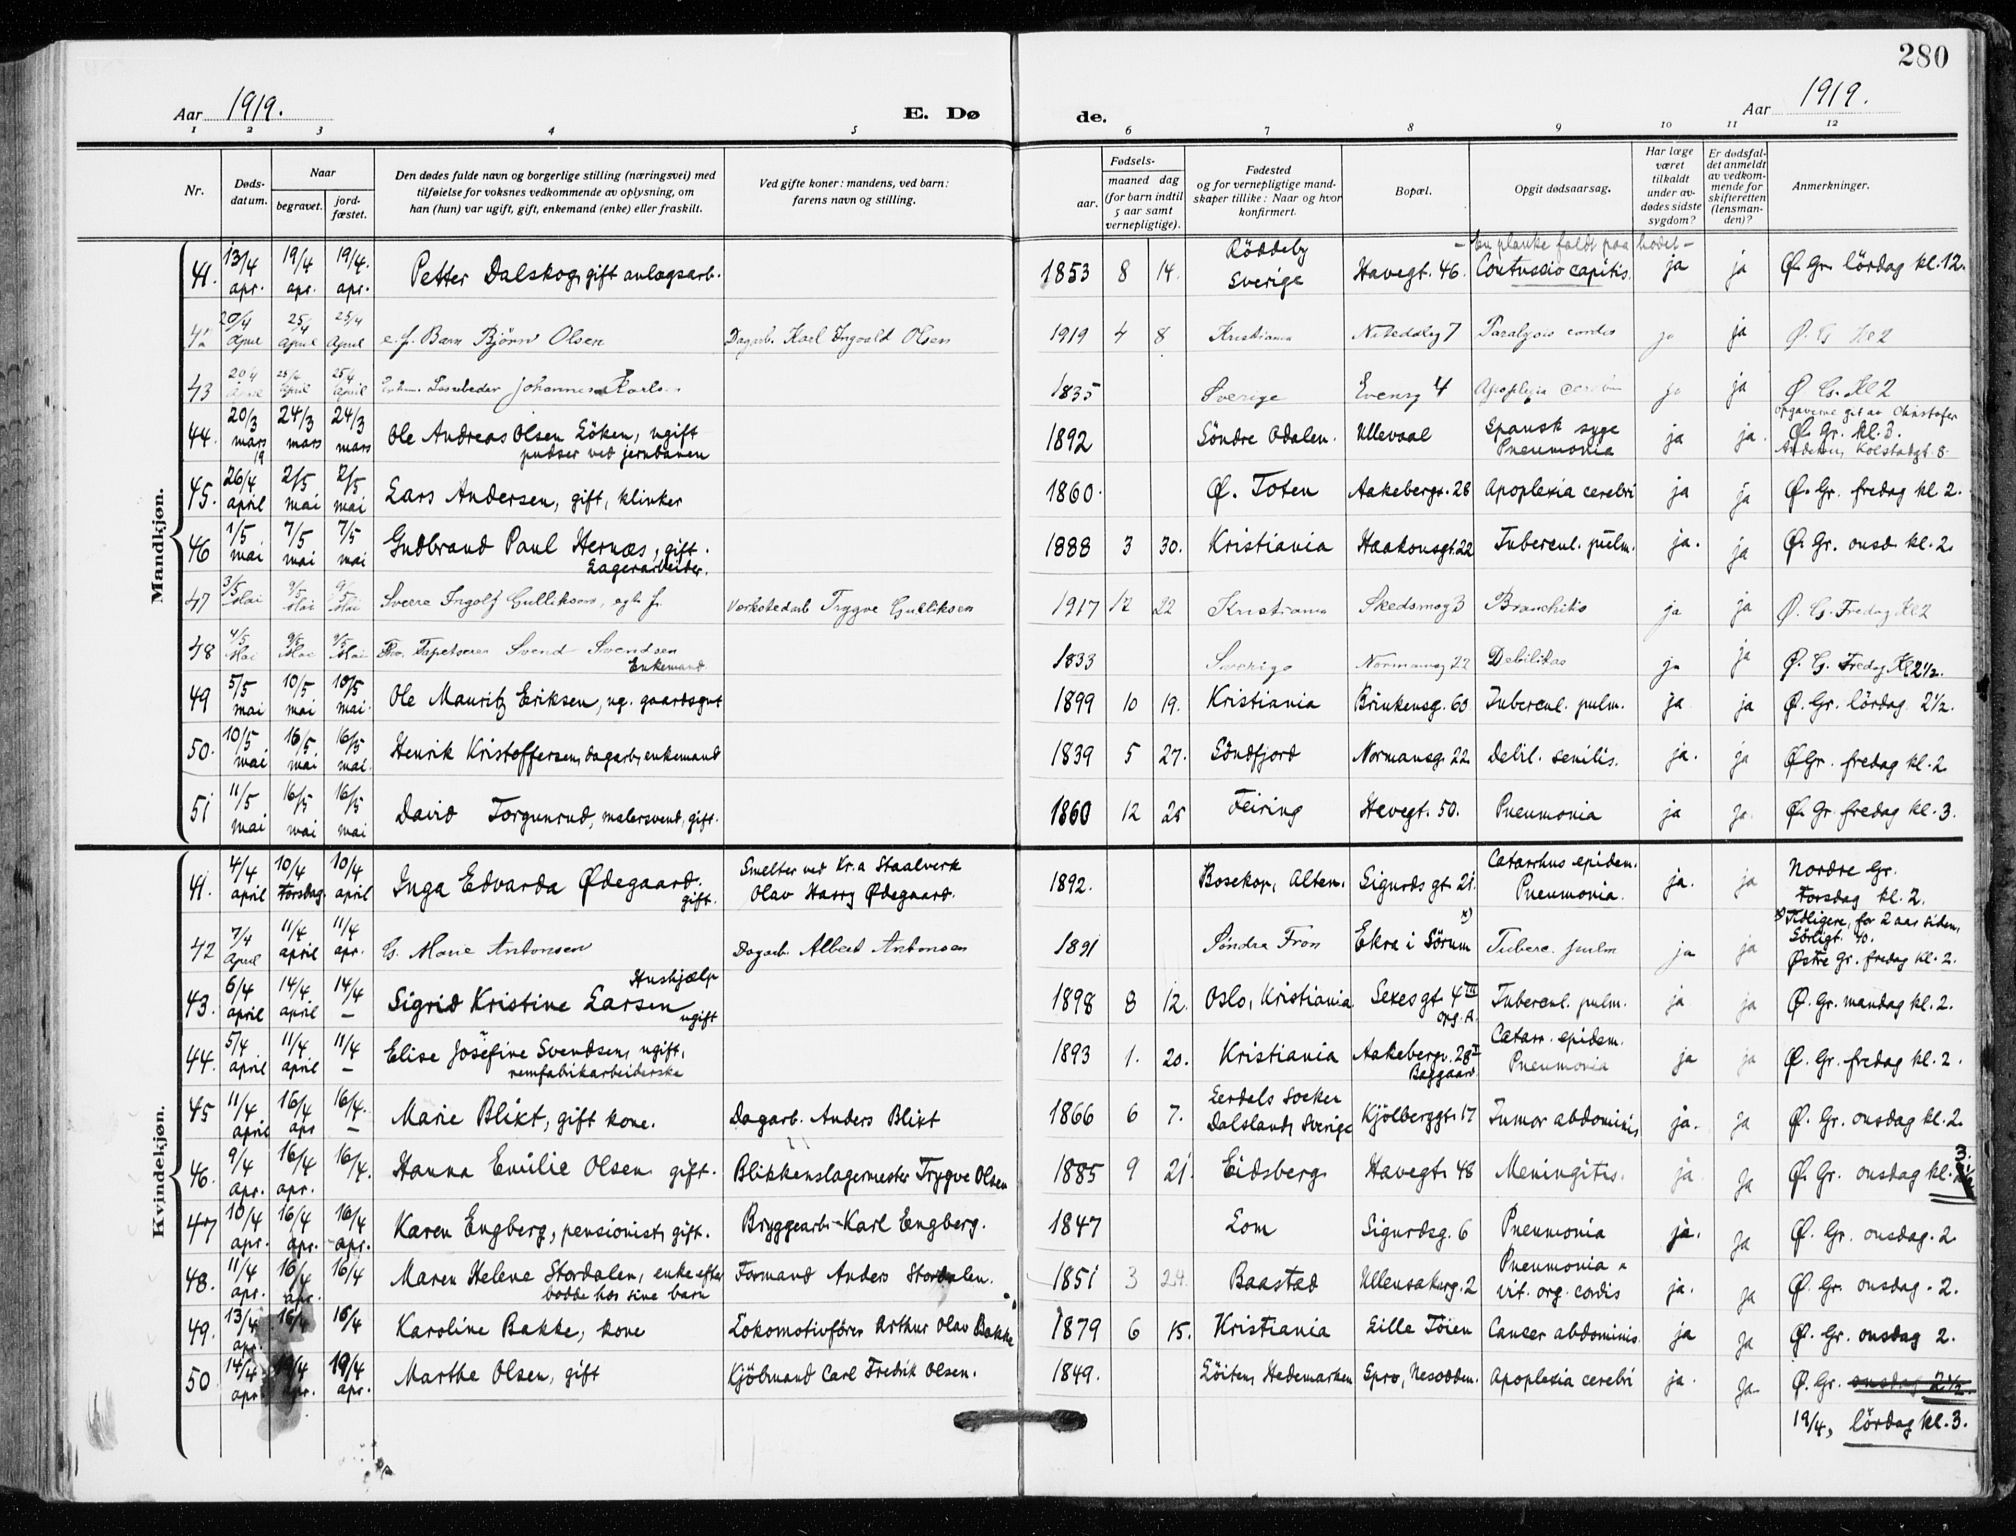 280
Aar 1919. E. Dø de. Aar 1919.
1 2 3 4 5 6 7 8 9 10 11 12
Nr.
Døds-
datum.
Naar
begravet.
jord-
fæstet.
Den dødes fulde navn og borgerlige stilling (næringsvei) med
tilføielse for voksnes vedkommende av oplysning, om
han (hun) var ugift, gift, enkemand (enke) eller fraskilt.
Ved gifte koner: mandens, ved barn:
farens navn og stilling.
Fødsels-
aar.
maaned dag
(for barn indtil
5 aar samt
vernepligtige).
Fødested
og for vernepligtige mand-
skaper tillike: Naar og hvor
konfirmert.
Bopæl.
Opgit dødsaarsag.
Har læge
været
tilkaldt
under av-
dødes sidste
sygdom?
Er dødsfal-
det anmeldt
av vedkom-
mende for
skifteretten
(lensman-
den)?
Anmerkninger.
Mandkjøn.
41. 13/4 apr. 19/4 apr. 19/4. apr. Petter Dalskog, gift anlægsarb. 1853 8 14. Röddeby Sverige Havegt. 46. – En planke faldt paa hodet – Contussio capitis. ja ja Ø. Gr. lördag kl. 12.
42 20/4 April 25/4 April 25/4 April e. f. Barn Bjönn Olsen Dagarb. Karl Ingvald Olsen 1919 4 8 Kristiania 7 Paralysis cordis ja ja Ø. G Kl 2
43 20/4 April 25/4 April 25/4 April Johannes Karls 1835 Sverige 4 Apoplexia cerebri ja ja Ø G. Kl 2
44. 20/3 mars 19 24/3 mars 24/3 mars Ole Andreas Olsen Löken, ugift pudser ved jernbanen 1892 Söndre Odalen. Ullevaal Spansk syge Pneumonia ja ja. opgaverne git av Christofer Ø. Gr. kl. 3. Kolstadgt. 8.
45. 26/4 april 2/5 mai 2/5 mai Lars Andersen, gift, klinker 1860. Ø. Toten Aakebergv. 28 Apoplexia cerebri ja ja Ø. Gr. fredag kl 2.
46 1/5 mai 7/5 mai 7/5 mai Gudbrand Paul Hernæs, gift. Lagerarbeider. 1888 3 30. Kristiania Haakonsgt. 22 Tubercul. pulm. ja. ja Ø. Gr. onsd. kl. 2.
47 3/5 Mai 9/5 Mai 9/5 Mai Sverre Ingolf Gulliksen, egte f. Verkstedarb Trygve Gulliksen 1917 12 22 Kristiania Skedsmog 3 Bronchitis ja ja Ø. G. Fredag Kl 2
48 4/5 Mai 9/5 Mai 9/5 Mai Tapetserer Svend Svendsen Enkemand 1833 Sverige Normansg 22 Debilitas ja ja Ø. G. Fredag Kl 2 1/2.
49 5/5 mai 10/5 mai 10/5 mai. Ole Mauritz Eriksen, ug. gaardsgut 1899 10 19. Kristiania Brinkensg. 60 Tubercul. pulm. ja ja Ø. Gr. lördag 2 1/2.
50. 10/5 mai 16/5. mai 16/5 mai. Henrik Kristoffersen, dagarb, enkemand 1839 5 27. Söndfjord Normansg. 22 Debil. senilis. ja. ja Ø Gr. fredag kl. 2
51 11/5 mai 16/5 mai 16/5 mai David Torgunrud, malersvend, gift. 1860 12 25 Feiring Havegt. 50. Pneumonia ja ja. Ø. Gr. fredag kl. 3.
Kvindekjøn.
41. 4/4 april 10/4 Torsdag. 10/4 april Inga Edvarda Ødegaard. gift. Smelter ved Kr.a Staalverk Olav Harry Ødegaard. 1892. Bosekop, Alten. Sigurds gt. 21. Catarrhus epidem. Pneumonia. ja. ja Nordre Gr. Torsdag kl. 2.
42 7/4 April 11/4 april 11/4 apr. G. Marie Antonsen Dagarb. Albert Antonsen 1891 Søndre Fron Ekra i Sörum x) Tuberc. pulm ja ja x) Tidligere, for 2 aar siden, Sörligt. 10. Østre Gr. fredag kl. 2.
43. 6/4 april 14/4 april 14/4 – Sigrid Kristine Larsen Hushjælp ugift 1898 8 12. Oslo, Kristiania Sexesgt. 4 III opg. A. Tubercul. pulm. ja ja Ø. Gr. mandag kl. 2.
44. 5/4 april 11/4 april 11/4 – Elise Josefine Svendsen, ugift, remfabrikarbeiderske 1893 1. 20. Kristiania Aakebergv. 28 II Baggaard Catarr. epidem. Pneumonia ja ja Ø. Gr. fredag kl. 2.
45 11/4 april 16/4 apr 16/4. – Marie Blixt, gift kone. Dagarb. Anders Blixt 1866 6 7. Lerdals socken Dalsland, Sverige Kjölberggt. 17 Tumor abdominis ja. ja Ø. Gr. onsdag kl. 2.
46. 9/4 apr. 16/4 apr. 16/4. Hanna Emilie Olsen gift. Blikkenslagermester Trygve Olsen 1885 9 21. Eidsberg. Havegt. 48 Meningitis. ja ja Ø. Gr. onsdag kl. 3.
47 10/4 apr. 16/4 apr. 16/4 apr. Karen Engberg, pensionist, gift. Bryggearb. Karl Engberg. 1847 Lom Sigurdsg. 6 Pneumonia ja. ja Ø. Gr. onsdag. 2
48. 11/4 apr. 16/4 apr. 16/4 Maren Helene Stordalen, enke efter bodde hos sine barn Formand Anders Stordalen. 1851 3 24. Baastad Ullensakerg. 2 Pneumonia & vit. org. cordis ja. ja Ø. Gr. onsdag. 2.
49. 13/4 apr. 16/4 16/4 Karoline Bakke, kone Lokomotivfører Arthur Olav Bakke 1879 6 15. Kristiania Lille Töien Cancer abdominis. ja ja Ø. Gr. onsdag 2.
50 14/4 apr. 19/4 apr. 19/4 apr. Marthe Olsen, gift Kjöbmand Carl Fredrik Olsen. 1849. Löiten, Hedemarken Spro, Nesodden. Apoplexia cerebri ja. ja. Ø. Gr. onsdag 2 1/2.
19/4, lördag kl. 3.